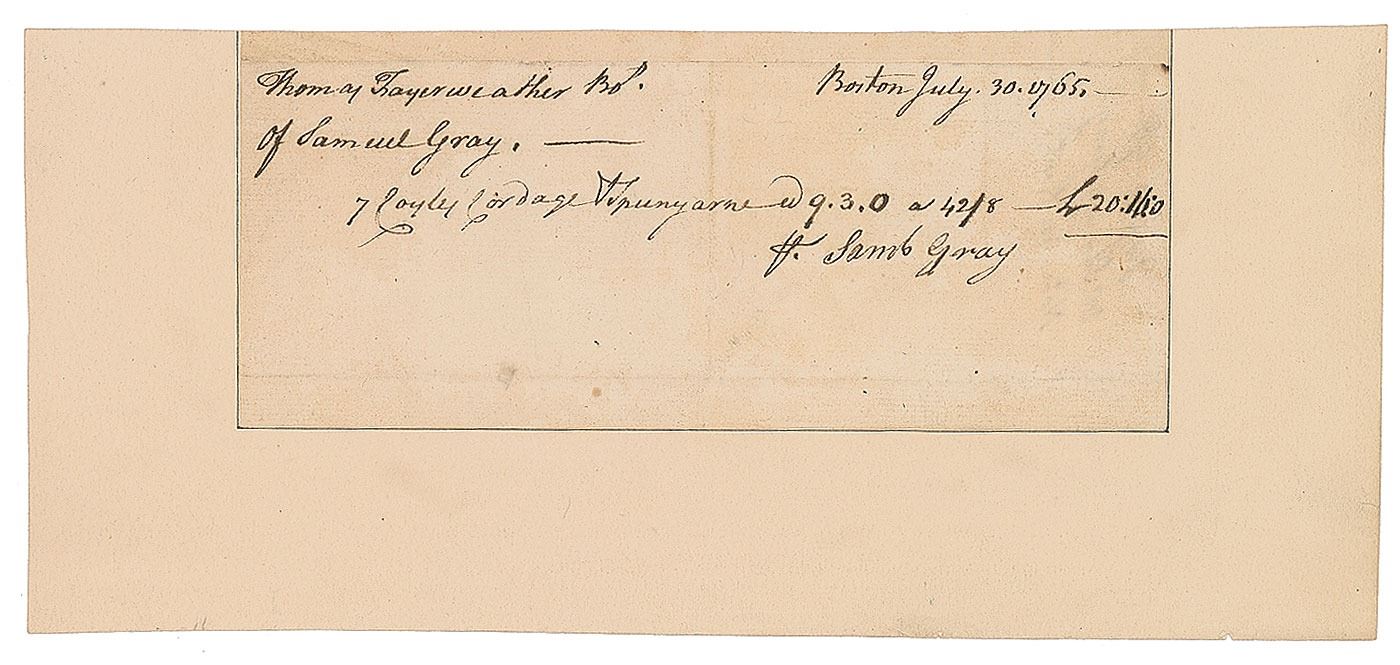 Thomas Fayerweather Bo.t Boston July. 30. 1765.
Of Samuel Gray.
7 Coyles Cordage & Spunyarne w 9.3.0 a 42/8 £20:16:0
⅌. Saml Gray